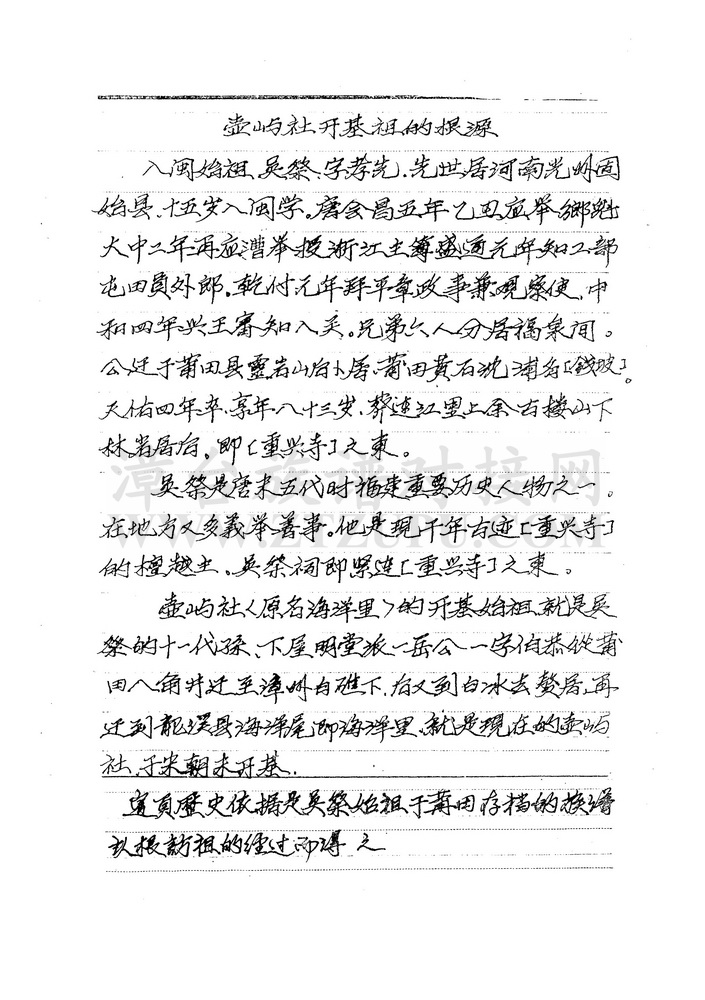 壶屿社开基祖的根源
入闽始祖、吴祭、字孝先、先世居河南光州固
始县、十五岁入闽学。唐会昌五年乙丑应举乡魁
大中二年再应漕举授浙江主簿盛通元年知工部
屯田員外郎。乾付元年拜平章政事兼观察使、中
和四年兴王審知入关。兄弟六人分居福泉间。
公迁于莆田县靈岩山后卜居、莆田黄石沈浦名〔钱坡〕。
天佑四年卒、享年八十三岁、葬连江里上余古楼山下
林岩居后。即〔重兴寺〕之東。
吴祭是唐末五代时福建重要历史人物之一。
在地方又多義举善事。他是现千年古迹〔重兴寺〕
的檀越主。吴祭祠即紧连〔重兴寺〕之東。
壶屿社〈原名海洋里〉的开基始祖、就是吴
祭的十一代孫、下屋明堂派一岳公一字伯恭從莆
田八角井迁至漳州白礁下、后又到白水去螯居、再
迁到龍溪县海洋尾即海洋里、就是現在的壶屿
社、于宋朝末开基.
這頁歷史依据是吴祭始祖于莆田存档的族譜
以根訪祖的经过而得之
漳台族谱对接网
WWW.ZTZUPU.COM